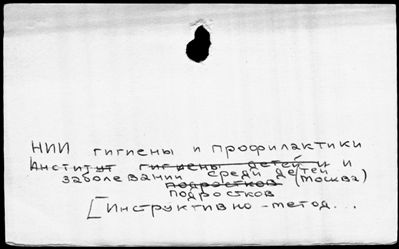 НИИ гигиены и профилактики
Институт гигиены детей и и
заболеваний среди детей
подростков (Москва)
подростков
[Инструктивно-метод...